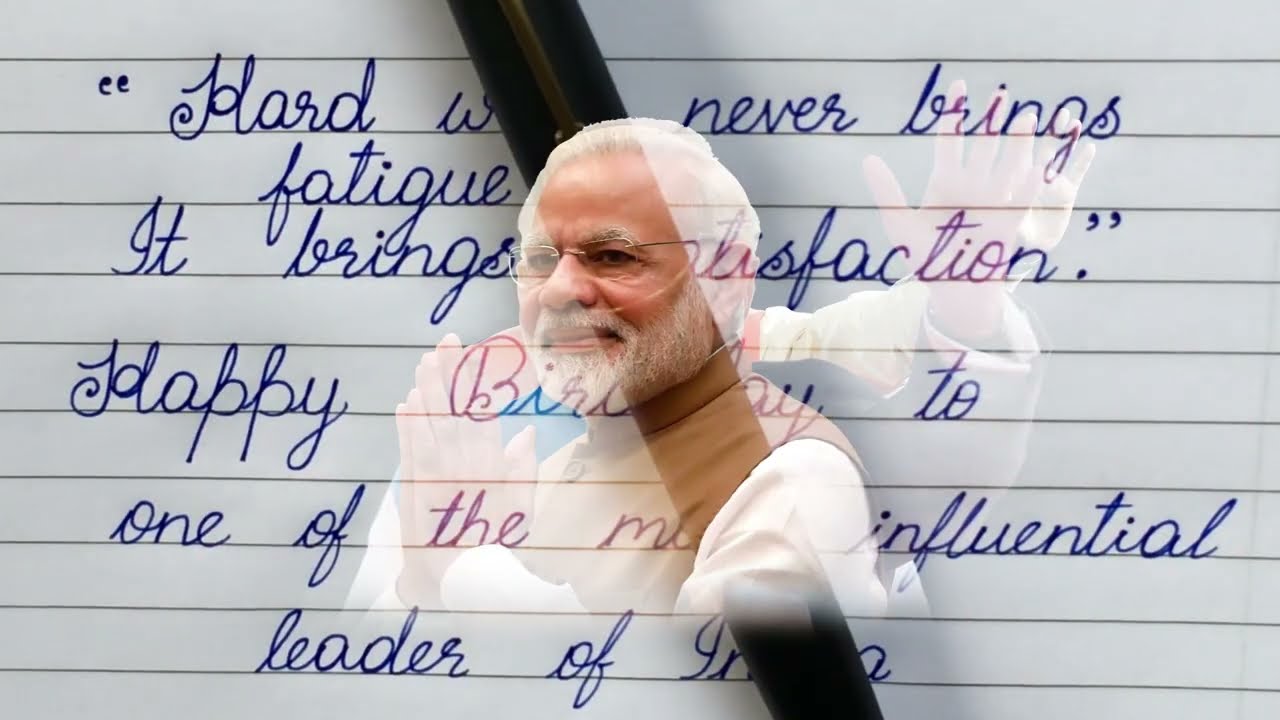 “Hard never brings
fatigue
It brings satisfaction.”
Happy Birthday to
one of the influential
leader of India